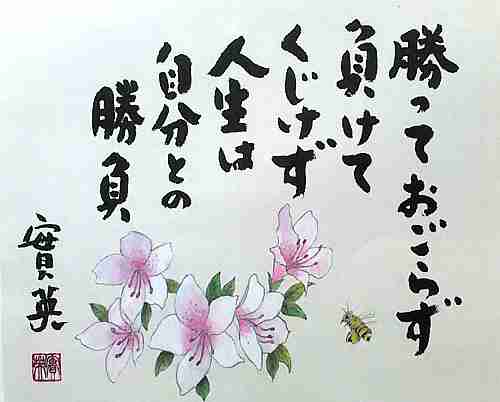 勝っておごらず
負けて
くじけず
人生は
自分との
勝負
實英